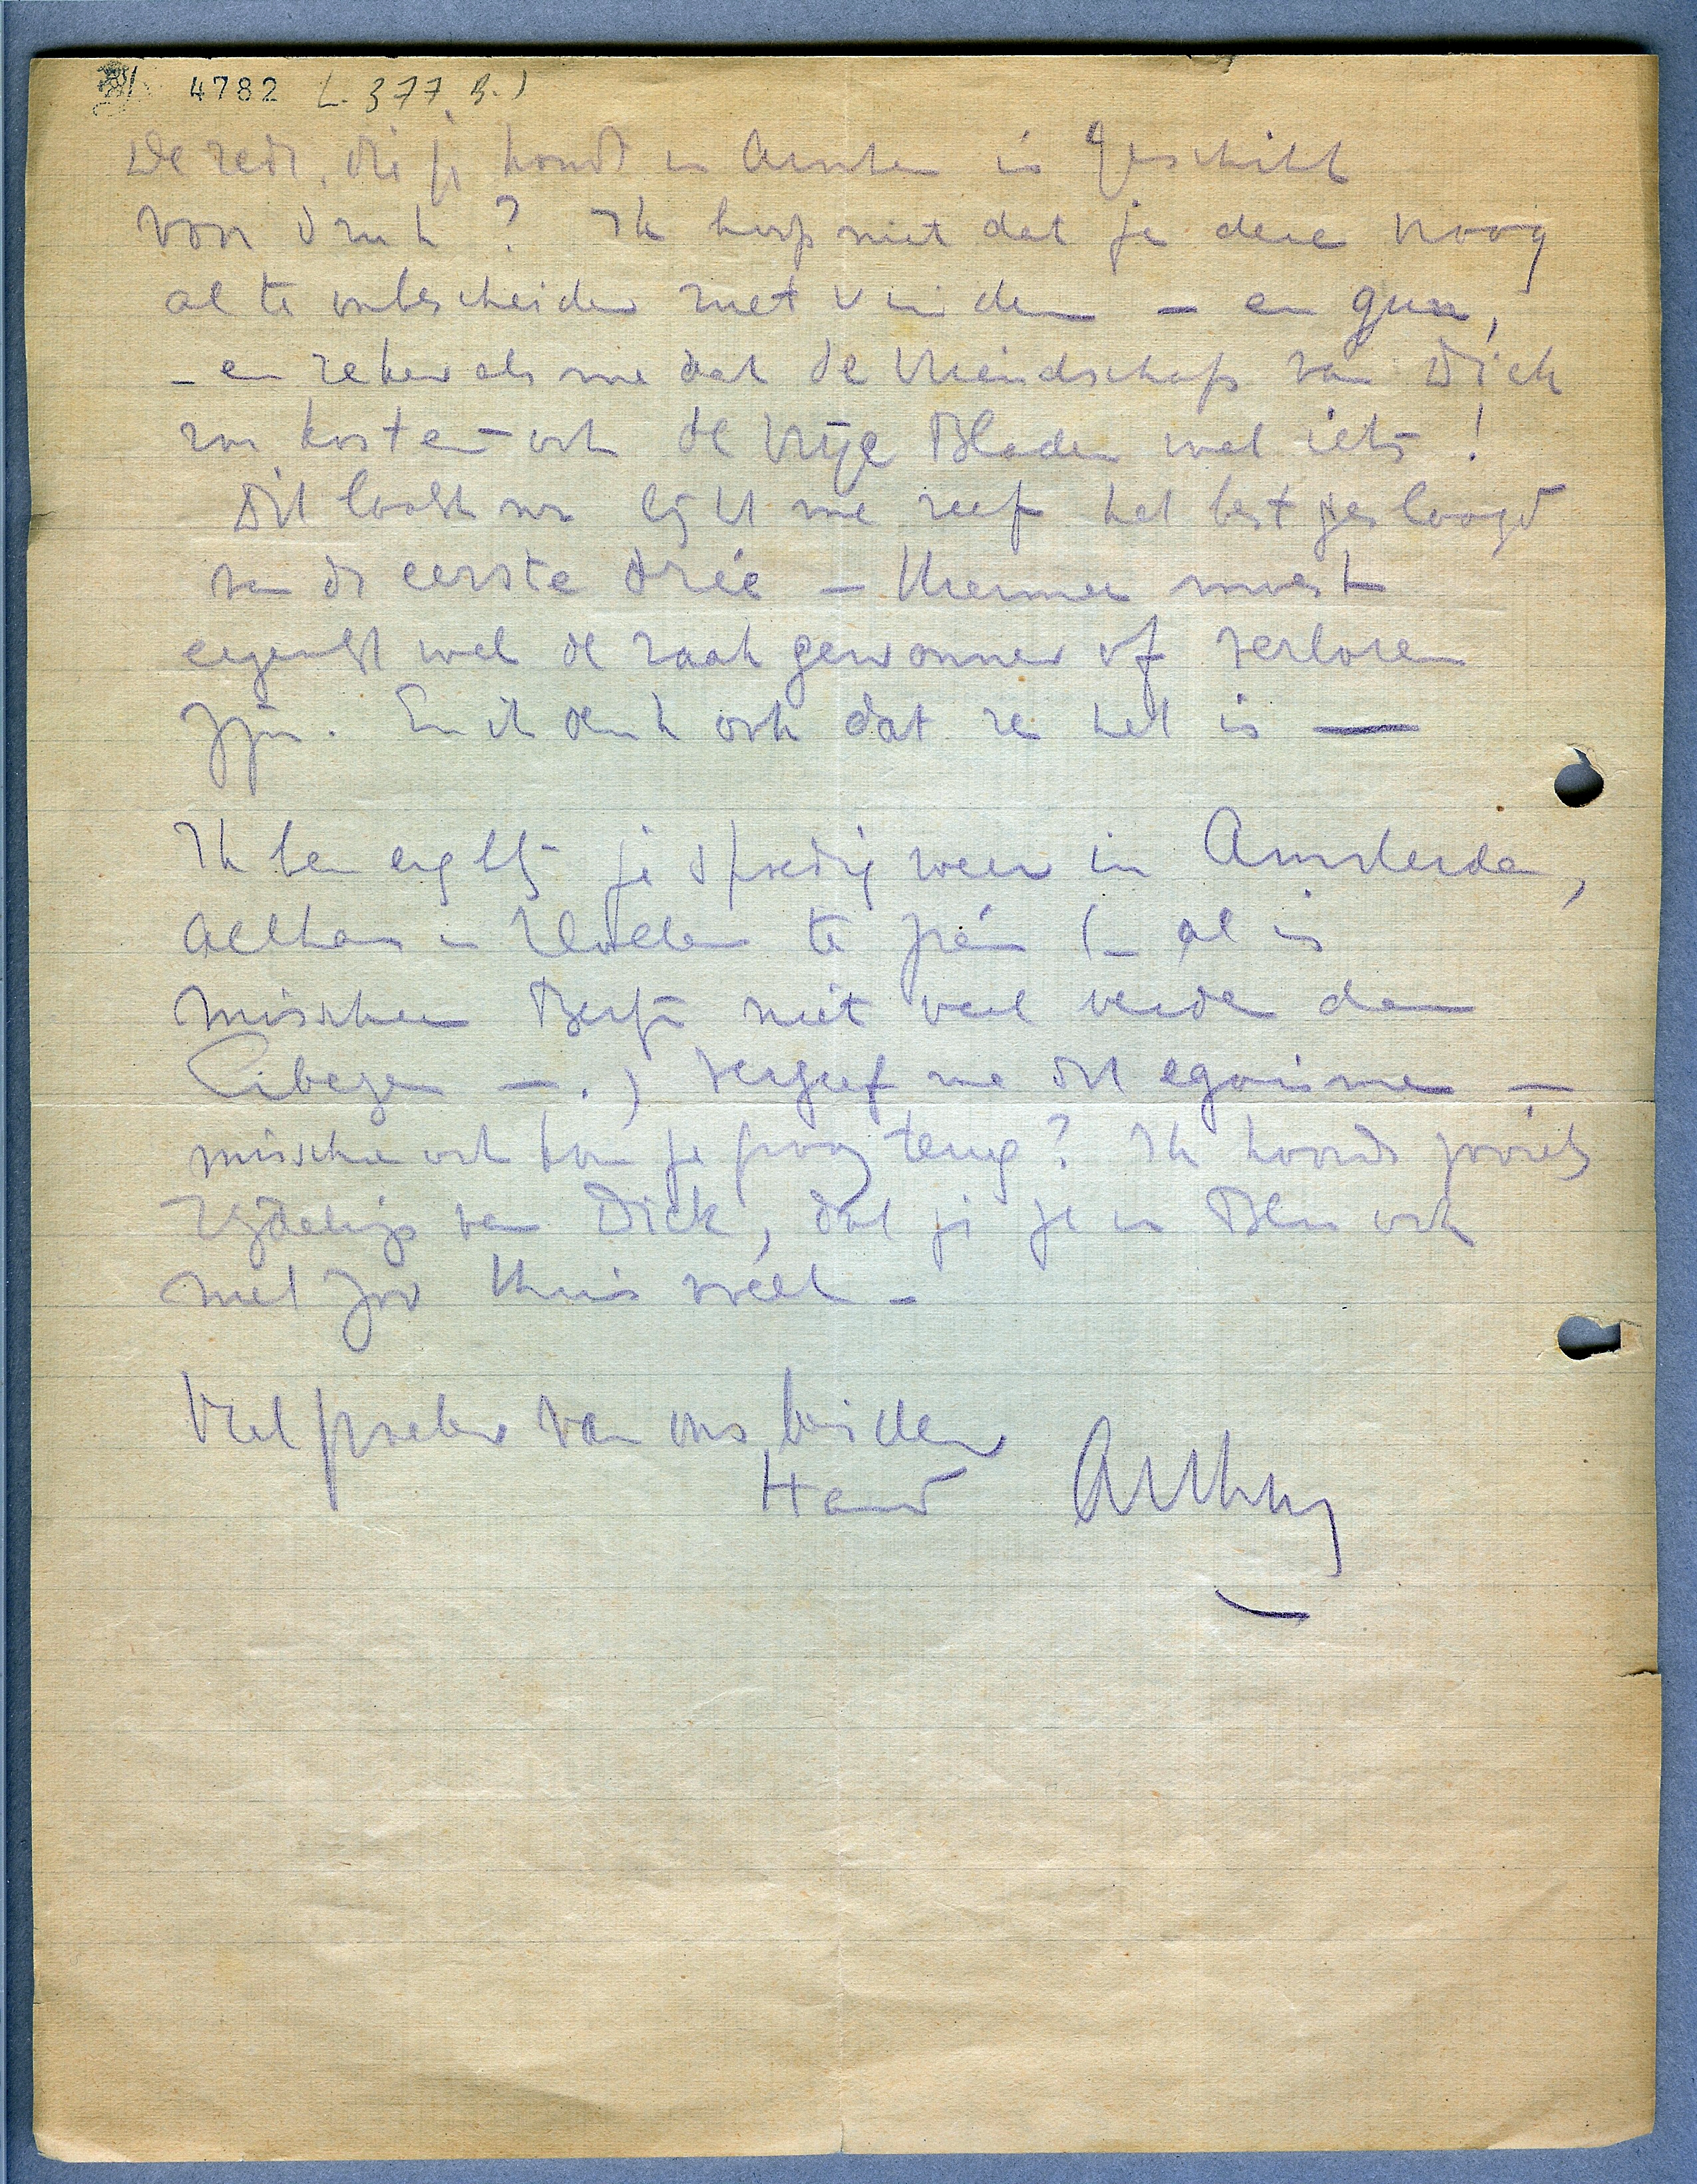 4782 L. 377 B.)
De rede, die je houdt in Arnhem is geschikt
voor druk? Ik hoop niet dat je deze vraag
al te onbescheiden met vinden — en gun,
– en zeker als me dat de vriendschap van Dick
zou kosten – ook de Vrije Bladen wel iets!
Dit laatste nr lijkt me zelf het best geslaagd
van de eerste drie — Hiermee moest
eigenlijk wel de zaak gewonnen of verloren
zijn. En ik denk ook dat ze het is —
Ik ben erg blij je spoedig weer in Amsterdam,
althans in Holland te zien (– al is
misschien Berlijn niet veel verder dan
—.) Vergeef me dit egoïsme —
misschien ook kom je graag terug? Ik hoorde zooiets
van Dick, dat je je in Blm ook
niet zoo thuis voelt –
Veel groeten van ons beiden
Hand Arthur